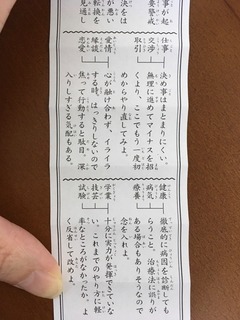 事が起
要警戒
決をは
が悪い
転換を
見通し
仕事
交渉
取引
決め事はまとまりにくい。
無理に進めてマイナスを招
くより、ここでもう一度初
めからやり直してみよ。
愛情
縁談
恋愛
心が融け合わず、イライラ
する時。はっきりしないので
焦って行動すると駄目。深
入りしすぎる気配もある。
健康
病気
療養
徹底的に病因を診断しても
らうこと。治療法に誤りが
ある場合もありそうなので
念を入れよ。
学業
技芸
試験
十分に実力が発揮できていな
い。これまでのやり方に軽
率なところがなかったか、よ
く反省して改めよ。